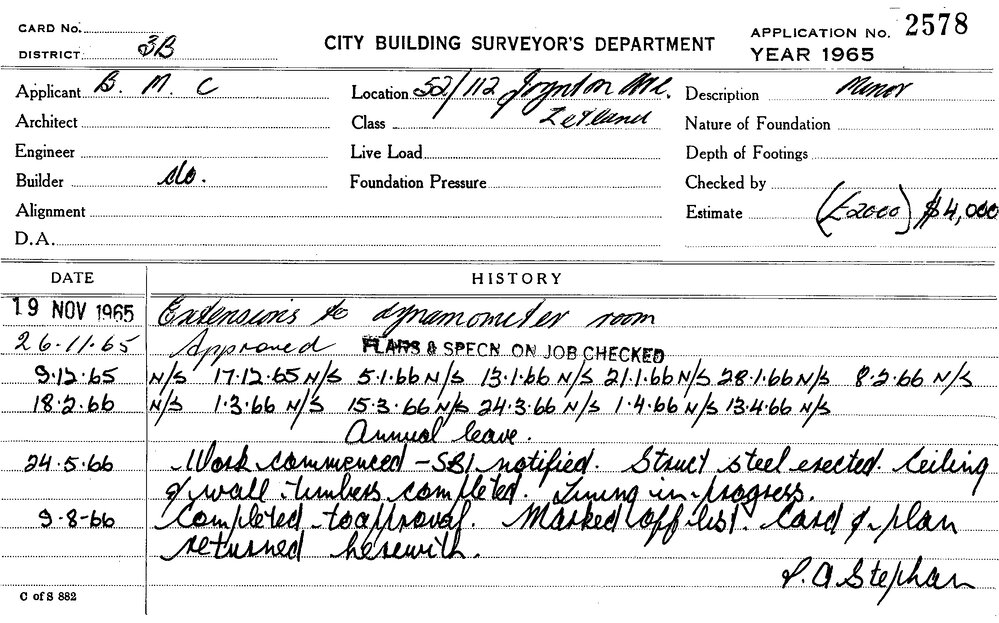 CARD No.
DISTRICT 3B
CITY BUILDING SURVEYOR'S DEPARTMENT
APPLICATION No. 2578
YEAR 1965
Applicant B. M. C
Location 52/112 Joynton Ave.
Description Minor
Architect
Class Zetland
Nature of Foundation
Engineer
Live Load
Depth of Footings
Builder do.
Foundation Pressure
Checked by
Alignment
Estimate (£2000) $4,000
D.A.
DATE HISTORY
19 NOV 1965 Extensions to dynamometer room
26.11.65 Approved PLANS & SPECN. ON JOB CHECKED
9.12.65 N/S 17.12.65 N/S 5.1.66 N/S 13.1.66 N/S 21.1.66 N/S 28.1.66 N/S 8.2.66 N/S
18.2.66 N/S 1.3.66 N/S 15.3.66 N/S 24.3.66 N/S 1.4.66 N/S 13.4.66 N/S
Annual leave.
24.5.66 Work commenced - SBI notified. Struct steel erected. Ceiling
& wall timbers completed. Lining in progress.
9-8-66 Completed to approval. Marked off list. Card & plan
returned herewith.
P. A Stephan
C of S 882